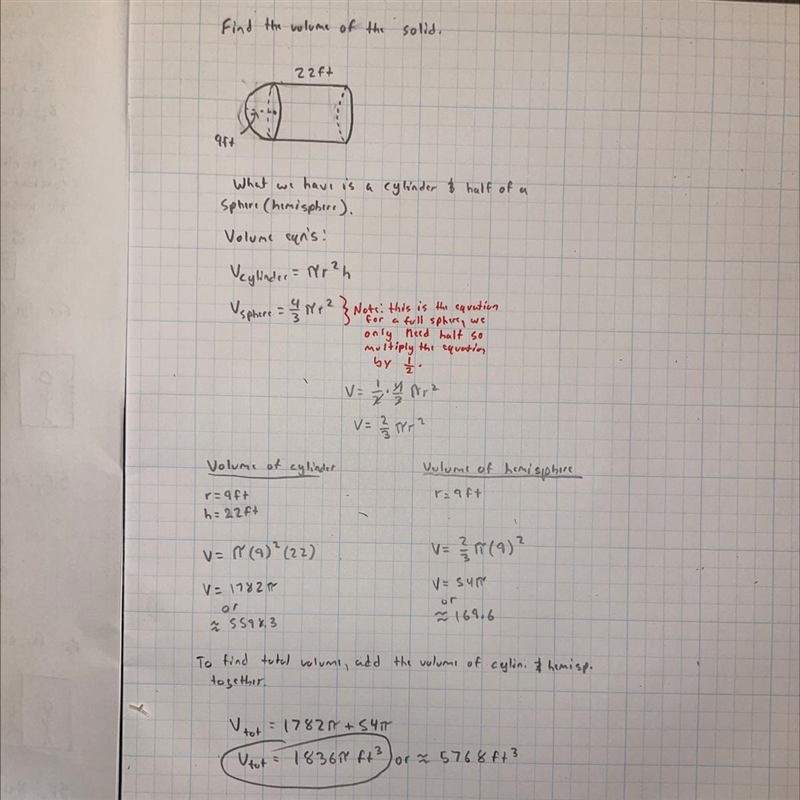 Find the volume of the solid.
22ft
9ft
What we have is a cylinder & half of a
sphere (hemisphere).
Volume eqn's:
Vcylinder = πr²h
Vsphere = 4/3 πr² } Note: this is the equation
for a full sphere, we
only need half so
multiply the equation
by 1/2.
V = 1/2 · 4/3 πr²
V = 2/3 πr²
Volume of cylinder
r = 9ft
h = 22ft
V = π(9)²(22)
V = 1782π
or
≈ 5598.3
Volume of hemisphere
r = 9ft
V = 2/3 π(9)²
V = 54π
or
≈ 169.6
To find total volume, add the volume of cylin. & hemisp.
together.
Vtot = 1782π + 54π
Vtot = 1836π ft³ or ≈ 5768ft³